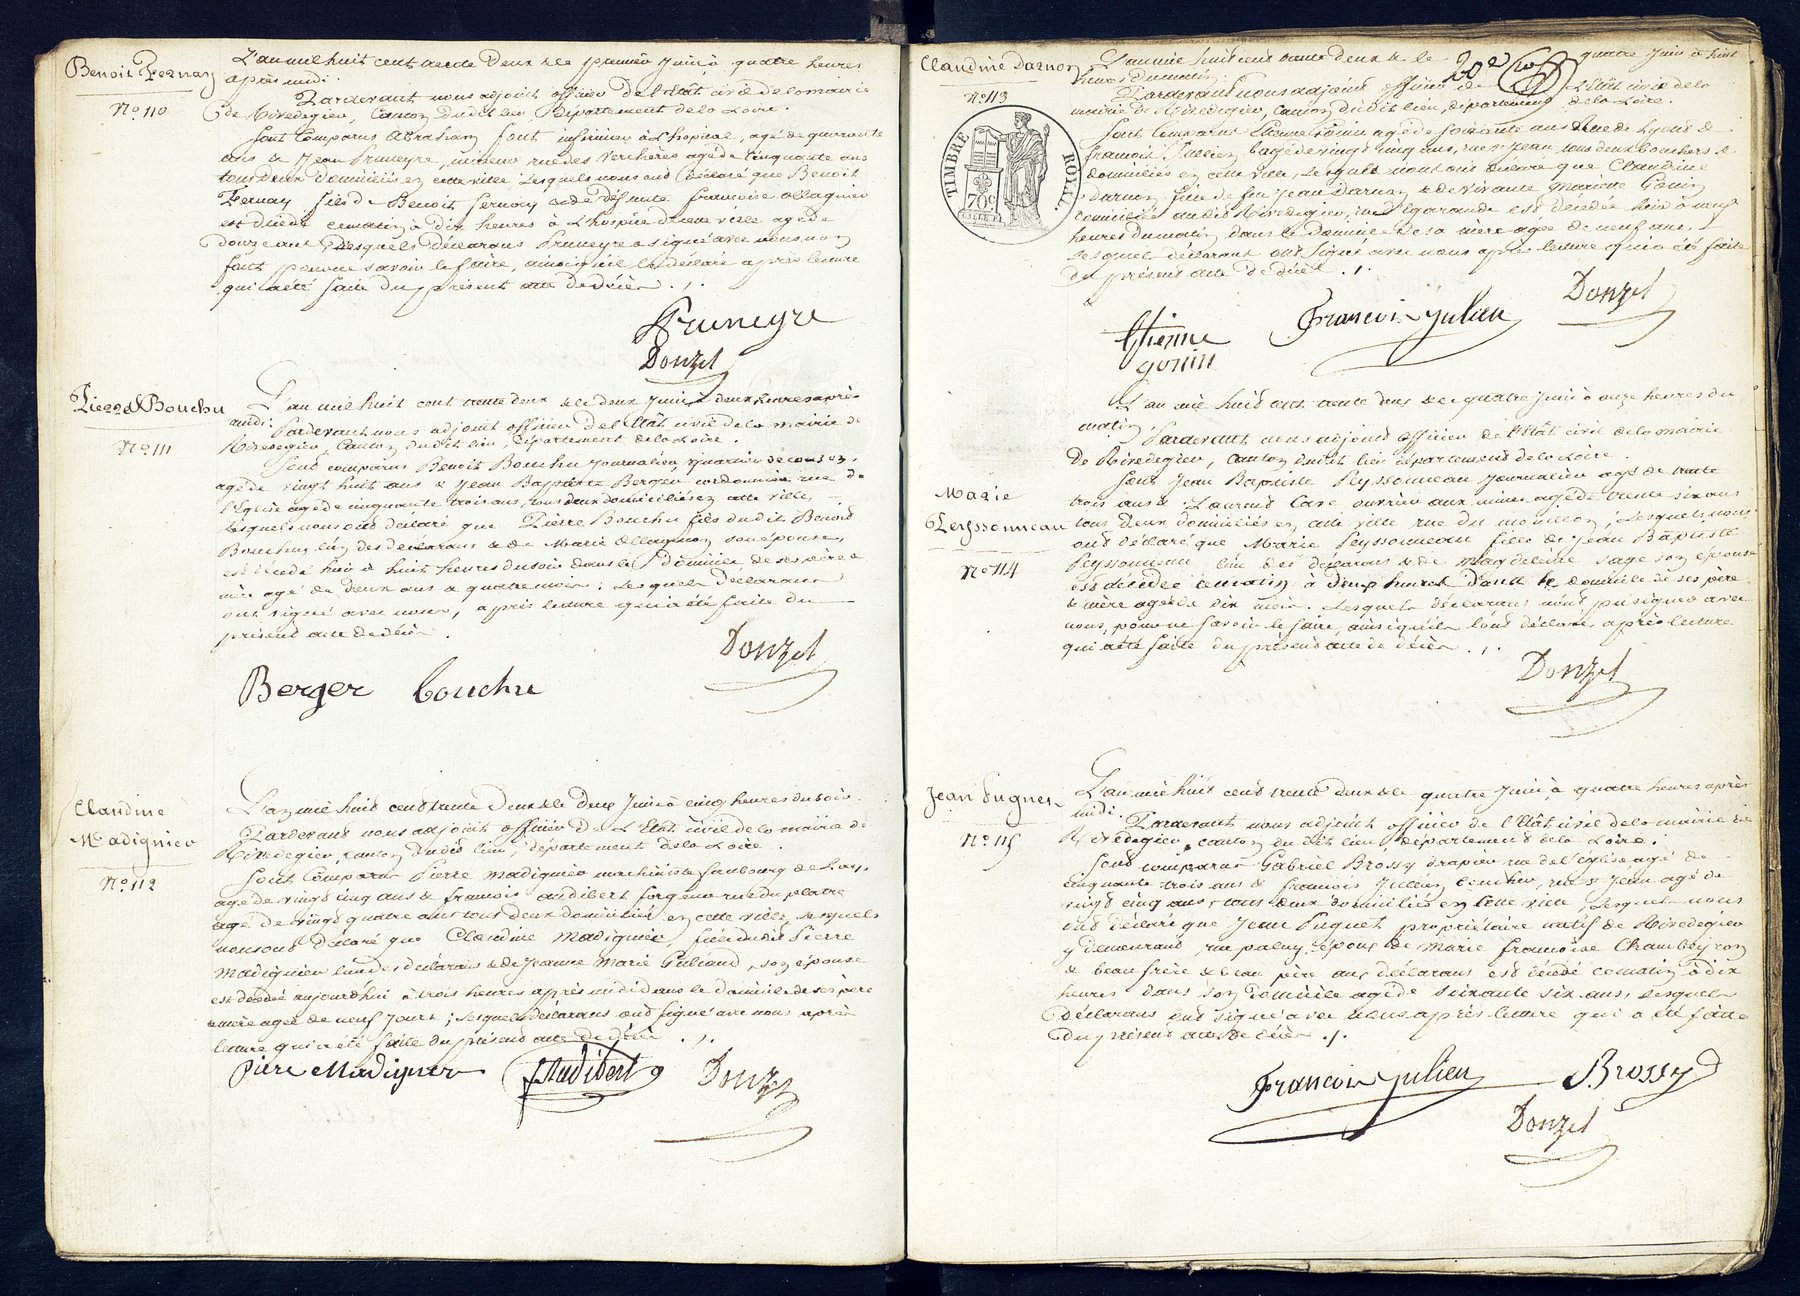 Benoit Fernay
N° 110
L'an mil huit cent trente Deux & le premier Juin, à quatre heures
après midi.
Pardevant nous adjoint officier de l'Etat civil de la mairie
de Rivedegier, Canton dudit lieu Département de la Loire.
Sont Comparus Abraham font infirmier à L'hopital, agé de quarante
ans & Jean Pruneyre, mineur rue des Verchères agé de Cinquante ans
tous deux domiciliés en cette ville, Lesquels nous ont déclaré que Benoit
Fernay fils de Benoit Fernay & de défunte francoise Allagnier
est décédé cematin à Dix heures à L'hospice de cette ville agé de
Douze ans Lesquels Déclarans Pruneyre a signé avec nous, non
font pour ne savoir le faire, ainsi qu'il l'a déclaré après lecture
qui a été faite Du présent acte de décès ./.
Pruneyre
Donzel
Pierre Bouchu
N° 111
L'an mil huit cent trente deux & le deux Juin, à deux heures après
midi. Pardevant nous adjoint officier De l'Etat civil de la mairie de
Rivedegier, Canton dudit lieu, département de la Loire.
Sont comparus Benoit Bouchu Journalier, quartier de couzon,
agé de vingt huit ans & Jean Baptiste Berger cordonnier rue de
l'Eglise agé de cinquante trois ans, tous deux domiciliés en cette ville,
Lesquels nous ont déclaré que Pierre Bouchu fils dudit Benoit
Bouchu, l'un des déclarans & de Marie Allagnon son épouse,
est décédé hier à huit heures du soir dans le Domicile de ses père &
mère agé de Deux ans & quatre mois; Lesquels Déclarans
ont signé avec nous, après lecture qui a été faite du
présent acte de décès.
Donzel
Berger bouchu
Claudine
Madignier
N° 112
L'an mil huit cent trente Deux & le Deux Juin à cinq heures du soir.
Pardevant nous adjoint officier De L'Etat civil de la mairie de
Rivedegier, canton dudit lieu, département de la Loire.
Sont Comparus Pierre Madignier machiniste faubourg de
agé de vingt cinq ans & francois audibert forgeur rue du platre
agé de vingt quatre ans tous deux domiciliés en cette ville, Lesquels
nous ont déclaré que Claudine Madignier, fille dudit Pierre
Madignier l'un des déclarans & de Jeanne Marie Guliaud, son épouse
est décédée aujourdhui à trois heures après midi dans le domicile de ses père
& mère agée de neuf Jours; Lesquels déclarans ont signé avec nous après
lecture qui a été faite du présent acte de décès ./.
Piere Madignier Audibert Donzel
Claudine Darnon
N° 113
TIMBRE ROYAL.
70c
20e
L'an mil huit cent trente deux & le quatre Juin à huit
heures Du matin.
Pardevant nous adjoint officier de L'Etat civil de la
mairie de Rivedegier, Canton Dudit lieu, département de la Loire.
Sont Comparus Etienne Gonin agé de soixante ans Rue de Lyon &
francois Jullien agé de vingt cinq ans, rue St Jean, tous deux bouchers &
domiciliés en cette ville, Lesquels nous ont déclaré que Claudine
Darnon, fille de feu Jean Darnon & de vivante Mariette Gonin
domiciliée audit Rivedegier, rue d'Egarande est décédée hier à neuf
heures Du matin Dans le Domicile De sa mère agée de neuf ans.
Lesquels déclarans ont signé avec nous après lecture qui a été faite
Du présent acte De décès ./.
Etienne gonin
Francois Julien
Donzel
Marie
Peyssonneau
N° 114
L'an mil huit cent trente deux & le quatre Juin à onze heures du
matin. Pardevant nous adjoint officier de l'Etat civil de la mairie
De Rivedegier, Canton dudit lieu département de la Loire.
Sont Jean Baptiste Peyssonneau Journalier agé de trente
trois ans & Laurent Cave ouvrier aux mines agé de trente six ans
tous deux domiciliés en cette ville rue du mouillon; Lesquels nous
ont déclaré que Marie Peyssonneau fille de Jean Baptiste
Peyssonneau l'un des déclarans & de Magdeleine Sage son épouse
est décédée cematin à Deux heures Dans le domicile de ses père
& mère agée de dix mois. Lesquels déclarans n'ont pu signer avec
nous, pour ne savoir le faire, ainsi qu'ils l'ont déclaré, après lecture
qui a été faite du présent acte de décès ./.
Donzel
Jean Pugnet
N° 115
L'an mil huit cent trente deux & le quatre Juin, à quatre heures après
midi. Pardevant nous adjoint officier de l'Etat civil de la mairie de
Rivedegier, canton du dit lieu, département de la Loire.
Sont comparus Gabriel Brossy drapier rue de l'église agé de
cinquante trois ans & francois Jullien boucher, rue St Jean agé de
vingt cinq ans, tous deux domiciliés en cette ville, Lesquels nous
ont déclaré que Jean Puguet propriétaire natif de Rivedegier
y demeurant rue paluy, époux de Marie francoise Chambeyron
& beau frère & beau père aux déclarans est décédé cematin à dix
heures dans son domicile agé de soixante six ans, Lesquels
déclarans ont signé avec nous après lecture qui a été faite
Du présent acte de décès ./.
Francois julien Brossy
Donzel